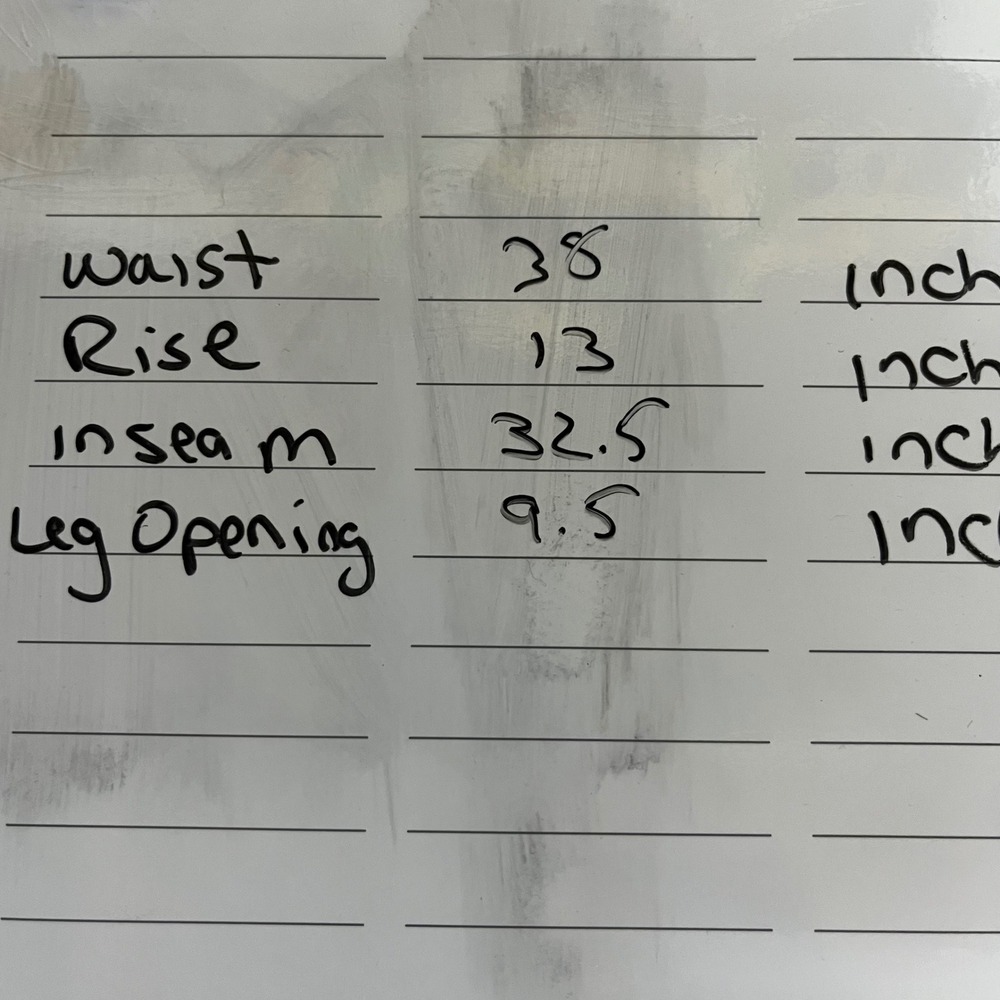 Waist 38 Inch
Rise 13 Inch
Inseam 32.5 Inch
Leg Opening 9.5 Inc